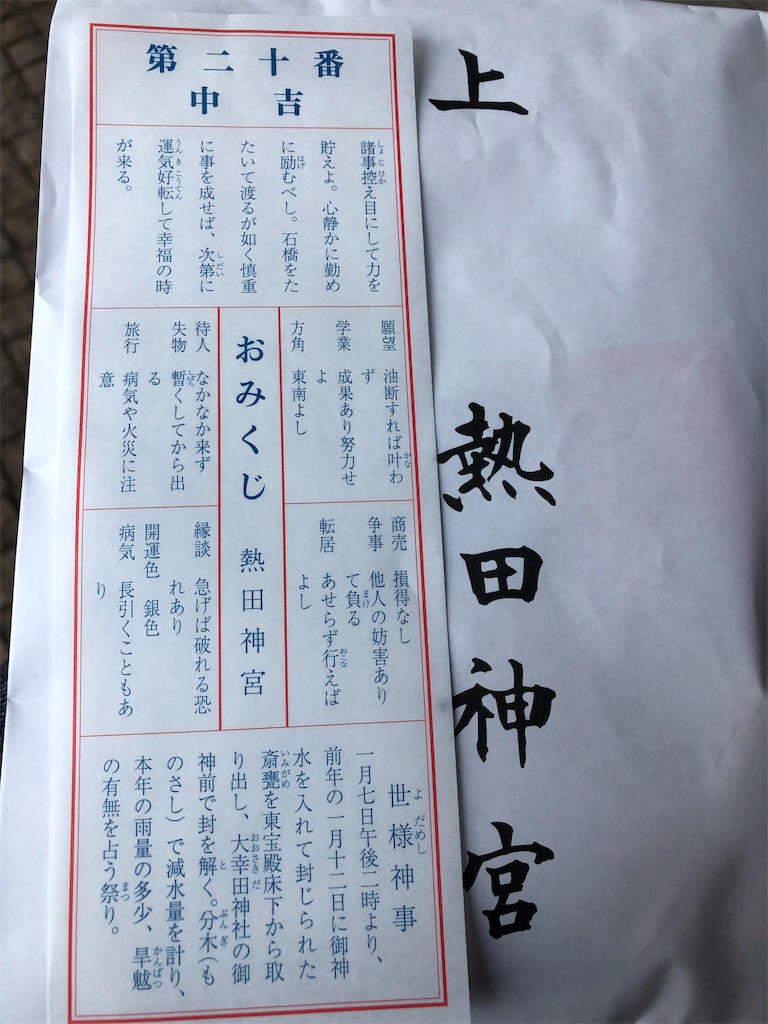 第二十番
中吉
諸事控え目にして力を
貯えよ。心静かに勤め
に励むべし。石橋をた
たいて渡るが如く慎重
に事を成せば、次第に
運気好転して幸福の時
が来る。
願望 油断すれば叶わ
ず
学業 成果あり努力せ
よ
方角 東南よし
おみくじ 熱田神宮
待人 なかなか来ず
失物 暫くしてから出
る
旅行 病気や火災に注
意
商売 損得なし
争事 他人の妨害あり
て負る
転居 あせらず行えば
よし
縁談 急げば破れる恐
れあり
開運色 銀色
病気 長引くこともあ
り
世様神事
一月七日午後二時より、
前年の一月十二日に御神
水を入れて封じられた
斎甕を東宝殿床下から取
り出し、大幸田神社の御
神前で封を解く。分木(も
のさし)で減水量を計り、
本年の雨量の多少、旱魃
の有無を占う祭り。
上
熱田神宮